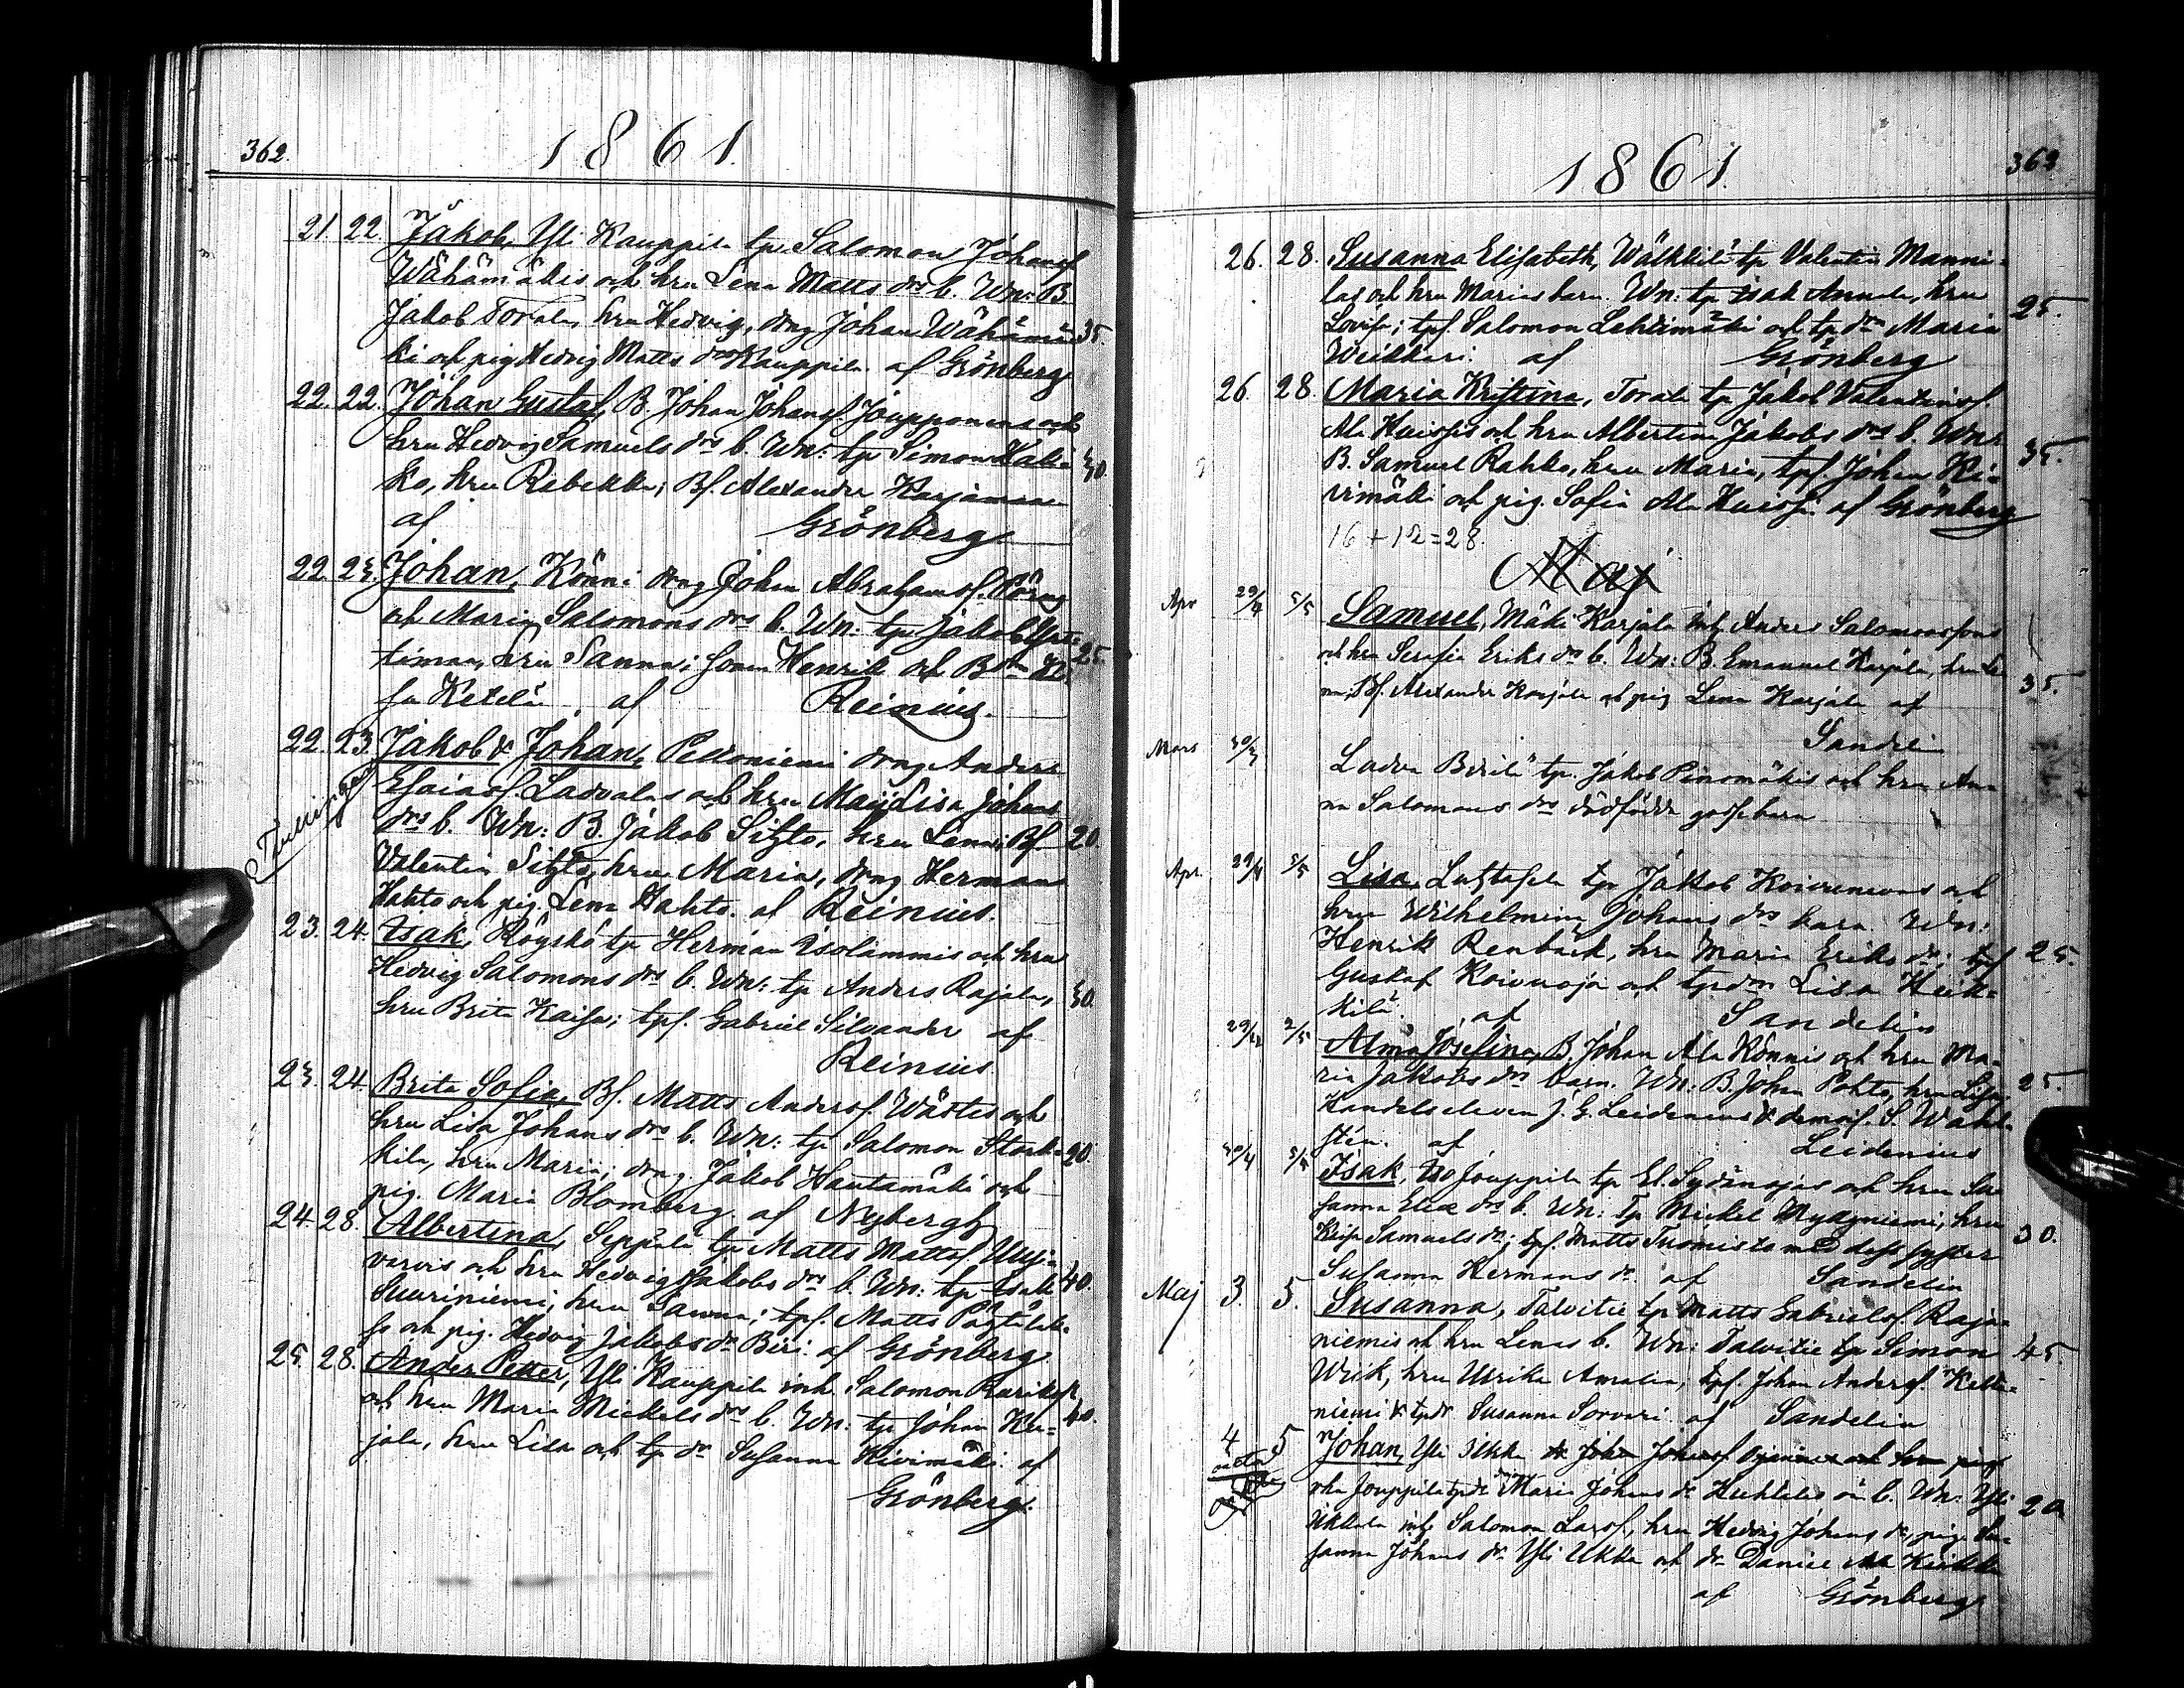 362.
1861.
21. 22. Jakob, Yli Kauppila tp. Salomon Johanss.
Wähämäkis och hru Lena Matts drs b. Wn: B.
Jakob Torala, hru Hedvig, drng Johan Wähämä- 35.
ki och pig. Hedvig Matts dr Kauppila. af Grönberg
22. 22. Johan Gustaf, B. Johan Johanss. Jouppanens och
hru Hedvig Samuels drs b. Wn: tp. Simon
ko, hru Rebekka; Bs. Alexander Karjanmaa 30.
af Grönberg
22. 23. Johan, Könni drng Johan Abrahamss.
och Maria Salomons drs b. Wn: tp. Jakob
hru Sanna; sonen Henrik och B 25.
Ketelä af Reinius.
22. 23. Jakob & Johan, Pelloniemi drng Anders
Tvillingar
Esaiass. Ladvalas och hru Maja Lisa Johans
drs b. Wn: B. Jakob hru Lena; Bs. 20.
Valentin hru Maria, drng Herman
Hahto och pig. Lena Hahto. af Reinius.
23. 24. Isak, Röyskö tp. Herman Isolammis och hru
Hedvig Salomons drs b. Wn: tp. Anders Rajala, 30.
hru Brita Kaisa; tps. Gabriel Silvander af
Reinius
23. 24. Brita Sofia, Bs. Matts Anderss. Wästes och
hru Lisa Johans drs b. Wn: tp. Salomon 20.
kila, hru Maria; drng Jakob Hautamäki och
pig. Maria Blomberg. af Nyberg
24. 28. Albertina, Seppälä tp. Matts Mattss. Uusi-
varvis och hru Hedvig Jakobs drs b. Wn: tp. Isak 40.
Suuriniemi, hru Sanna; tps. Matts
och pig. Hedvig Jakobs dr af Grönberg
25. 28. Anders Petter, Yli Kauppila inh. Salomon
och hru Maria Mickels drs b. Wn: tp. Johan 40.
jala, hru Lisa och tp. dr Susanna Kivimäki af
Grönberg.
1861.
363
26. 28. Susanna Elisabeth, Wälkkilä tp. Valentin Manni-
las och hru Marias barn. Wn: tp. Isak Annala, hru 25.
Lovisa; tps. Salomon Lehtimäki och tp. dr Maria
Weikkari. af Grönberg
26. 28. Maria Kristina, Torala tp. Jakob Valentinss.
Ala Huissis och hru Albertina Jakobs drs b. Wn: 35.
B. Samuel Rahko, hru Maria, tps. Johan Ki-
vimäki och pig. Sofia Ala Huissi. af Grönberg
16+12=28.
Maj
Apr 29/4 5/5 Samuel, Mäki Karjala inh. Anders Salomonssons
och hru Serafia Eriks drs b. Wn: B. Emanuel Karjala, hru Le- 35.
na, Bs. Alexander Karjala och pig. Lena Karjala af
Sandelin
Mars 30/3 Ladva tp. Jakob Pinomäkis och hru An-
na Salomons drs dödfödda gossebarn
Apr. 29/4 5/5 Lisa, tp. Jakob Koivuniemis och
hru Wilhelmina Johans drs barn. Wn:
Henrik Renbäck, hru Maria Eriks dr; tps. 25.
Gustaf Koivuoja och tp. dr Lisa Heik-
kilä. af Sandelin
29/4 2/5 Alma Josefina, B. Johan Ala Könnis och hru Ma-
ria Jakobs drs barn. Wn: B. Johan Pohto, hru Lisa, 25.
Handelseleven J. G. Leidenius & demois. S. Wahl-
stén. af Leidenius
30/4 5/5 Isak, Iso Jouppila tp. El. Sydänojas och hru Su-
sanna Elias drs b. Wn: tp. Mickel hru 30.
Kaisa Samuels dr; tps. Matts Tuomisto med dess syster
Susanna Hermans dr. af Sandelin
Maj 3. 5. Susanna, Talvitie tp. Matts Gabrielss. Raja-
niemis och hru Lenas b. Wn: Talvitie tp. Simon 45.
Wiik, hru Ulrika Amalia, tps. Johan Anderss.
niemi & tpdr Susanna Sorvari. af Sandelin
4 5 Johan, Yli
oäkta
Jouppila tpdr Maria Johans dr oä b. Wn: Yli 20
inh. Salomon Larss., hru Hedvig Johans dr, pig. Su-
sanna Johans dr Yli och dr Daniel
af Grönberg